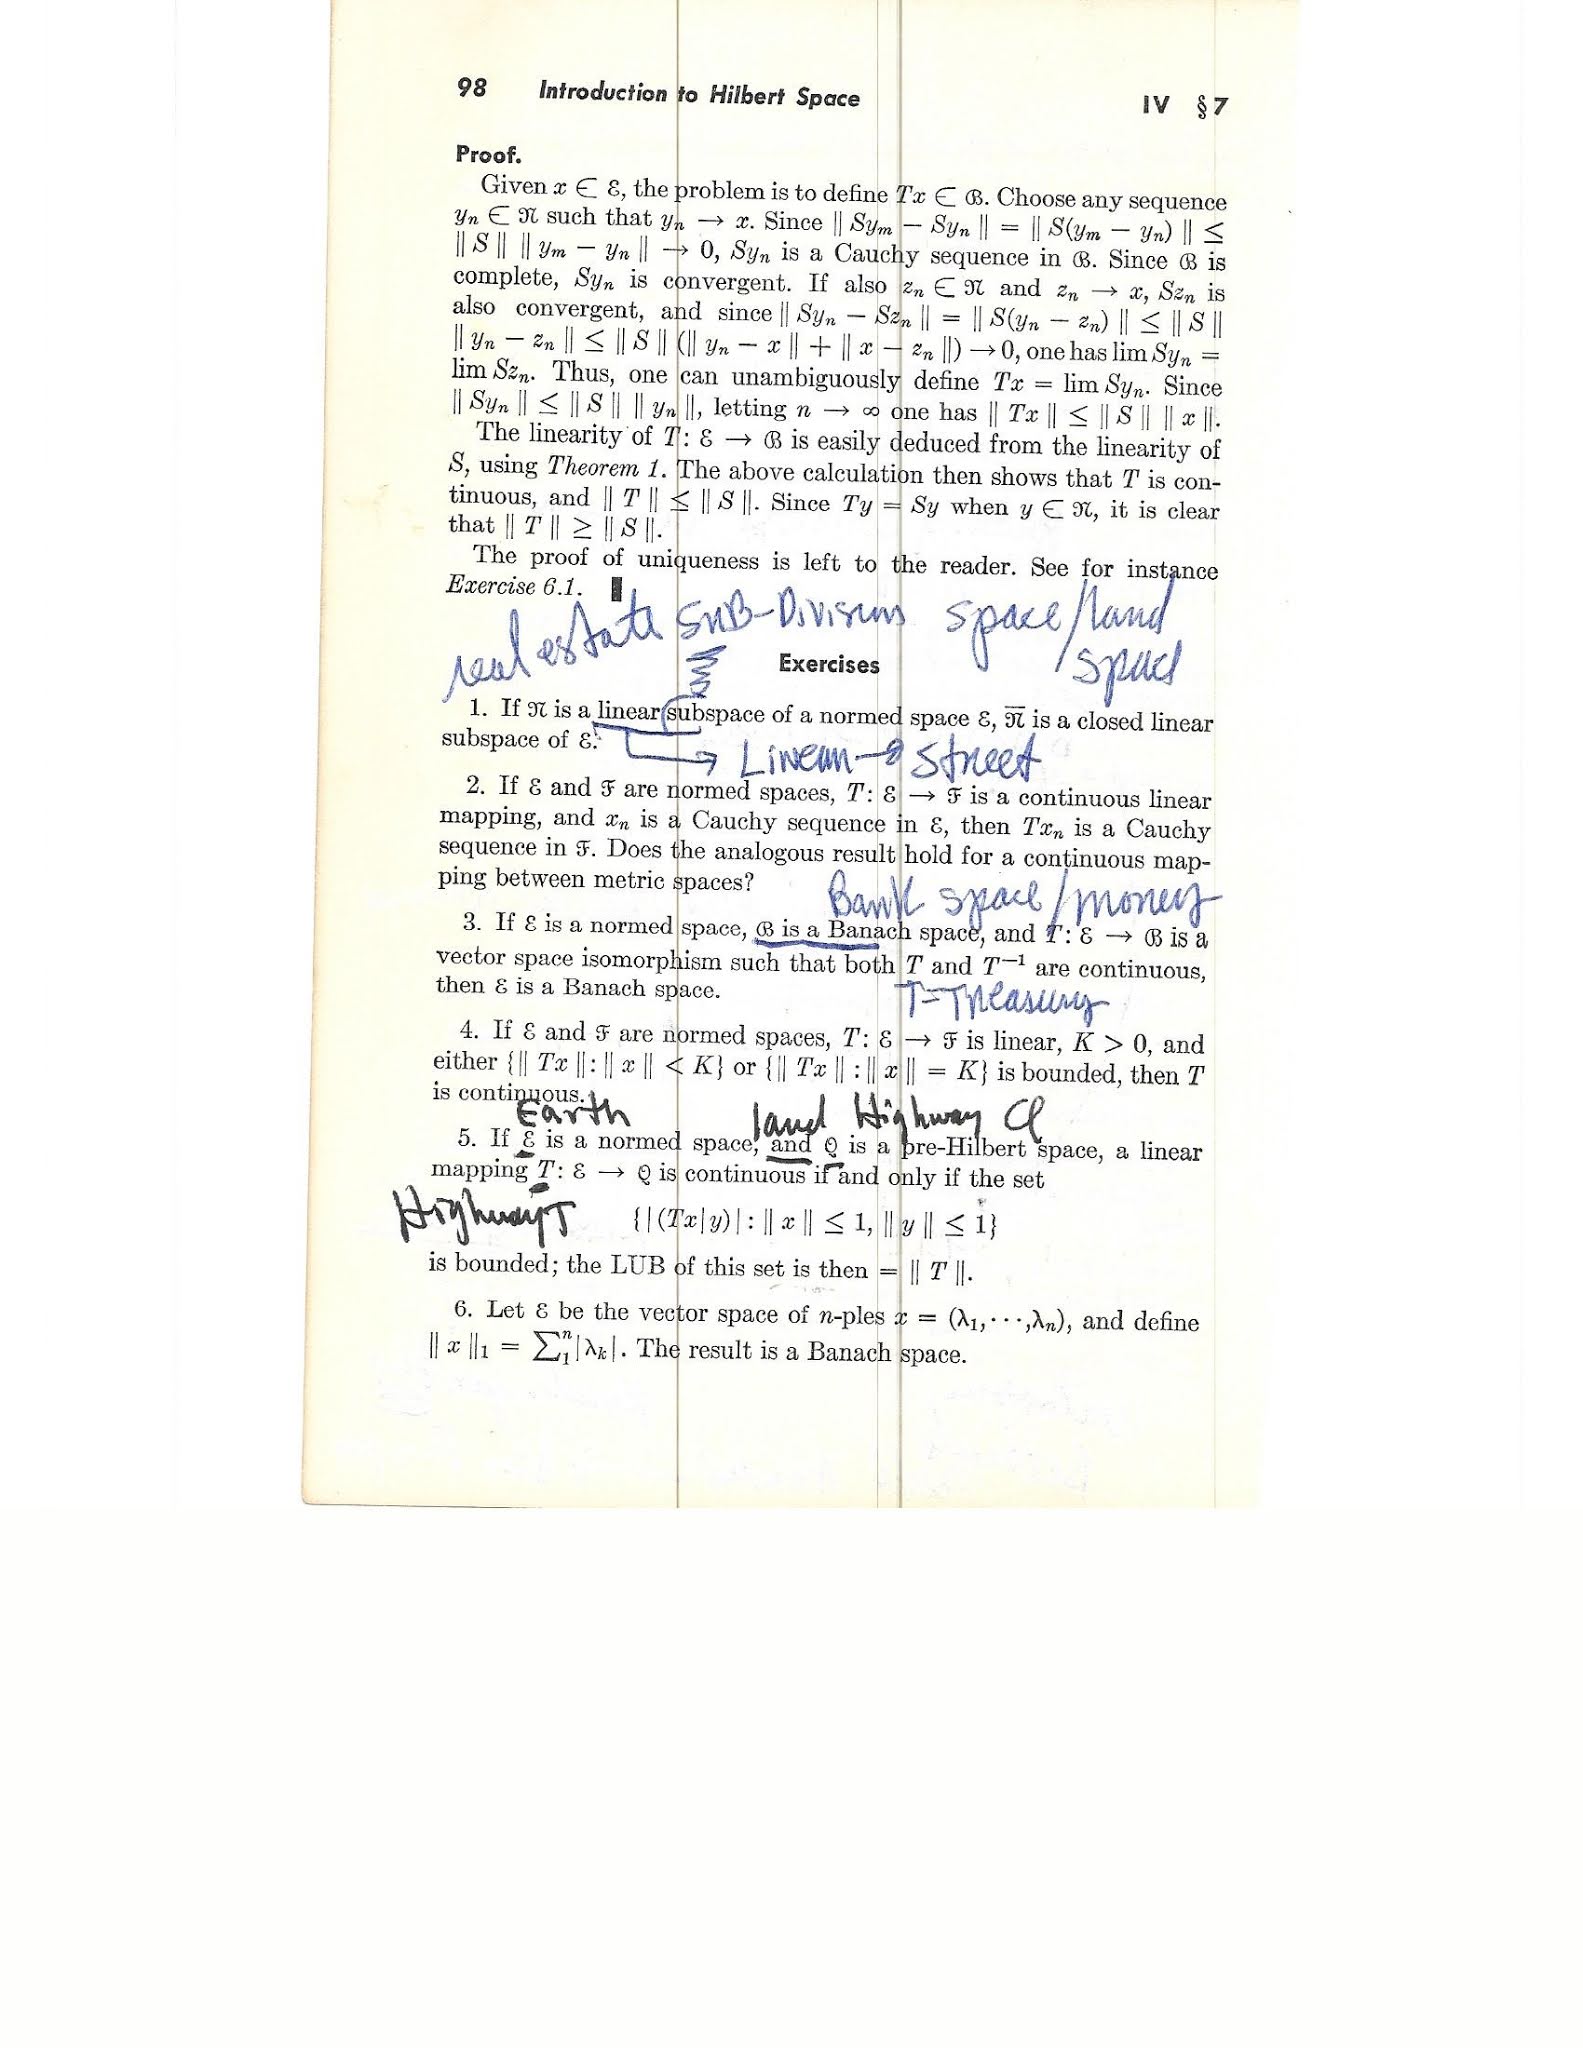 98 Introduction to Hilbert Space IV §7
Proof.
Given x ∈ ℰ, the problem is to define Tx ∈ ℬ. Choose any sequence
yₙ ∈ 𝔑 such that yₙ → x. Since ‖ Syₘ − Syₙ ‖ = ‖ S(yₘ − yₙ) ‖ ≤
‖ S ‖ ‖ yₘ − yₙ ‖ → 0, Syₙ is a Cauchy sequence in ℬ. Since ℬ is
complete, Syₙ is convergent. If also zₙ ∈ 𝔑 and zₙ → x, Szₙ is
also convergent, and since ‖ Syₙ − Szₙ ‖ = ‖ S(yₙ − zₙ) ‖ ≤ ‖ S ‖
‖ yₙ − zₙ ‖ ≤ ‖ S ‖ (‖ yₙ − x ‖ + ‖ x − zₙ ‖) → 0, one has lim Syₙ =
lim Szₙ. Thus, one can unambiguously define Tx = lim Syₙ. Since
‖ Syₙ ‖ ≤ ‖ S ‖ ‖ yₙ ‖, letting n → ∞ one has ‖ Tx ‖ ≤ ‖ S ‖ ‖ x ‖.
The linearity of T: ℰ → ℬ is easily deduced from the linearity of
S, using Theorem 1. The above calculation then shows that T is con-
tinuous, and ‖ T ‖ ≤ ‖ S ‖. Since Ty = Sy when y ∈ 𝔑, it is clear
that ‖ T ‖ ≥ ‖ S ‖.
The proof of uniqueness is left to the reader. See for instance
Exercise 6.1. ▮
real estate SUB-Division space/land
space
Exercises
1. If 𝔑 is a linear subspace of a normed space ℰ, 𝔑̅ is a closed linear
subspace of ℰ.
→ Linear → Street
2. If ℰ and ℱ are normed spaces, T: ℰ → ℱ is a continuous linear
mapping, and xₙ is a Cauchy sequence in ℰ, then Txₙ is a Cauchy
sequence in ℱ. Does the analogous result hold for a continuous map-
ping between metric spaces?
Bank space/money
3. If ℰ is a normed space, ℬ is a Banach space, and T: ℰ → ℬ is a
vector space isomorphism such that both T and T⁻¹ are continuous,
then ℰ is a Banach space.
T=Treasury
4. If ℰ and ℱ are normed spaces, T: ℰ → ℱ is linear, K > 0, and
either {‖ Tx ‖: ‖ x ‖ < K} or {‖ Tx ‖ : ‖ x ‖ = K} is bounded, then T
is continuous.
Earth land Highway Q
5. If ℰ is a normed space, and 𝒬 is a pre-Hilbert space, a linear
mapping T: ℰ → 𝒬 is continuous if and only if the set
Highway T
{|(Tx|y)|: ‖ x ‖ ≤ 1, ‖ y ‖ ≤ 1}
is bounded; the LUB of this set is then = ‖ T ‖.
6. Let ℰ be the vector space of n-ples x = (λ₁,···,λₙ), and define
‖ x ‖₁ = ∑₁ⁿ|λₖ|. The result is a Banach space.